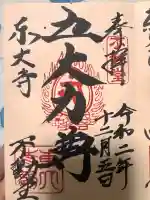 奉拝
令和二年
十二月五日
五大力尊
東大寺
不動堂